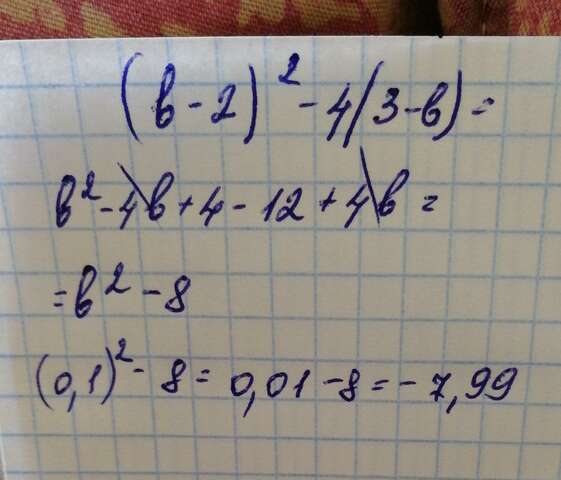 (b-2)² -4(3-b)=
b²-4b+4-12+4b=
=b²-8
(0,1)²-8=0,01-8=-7,99